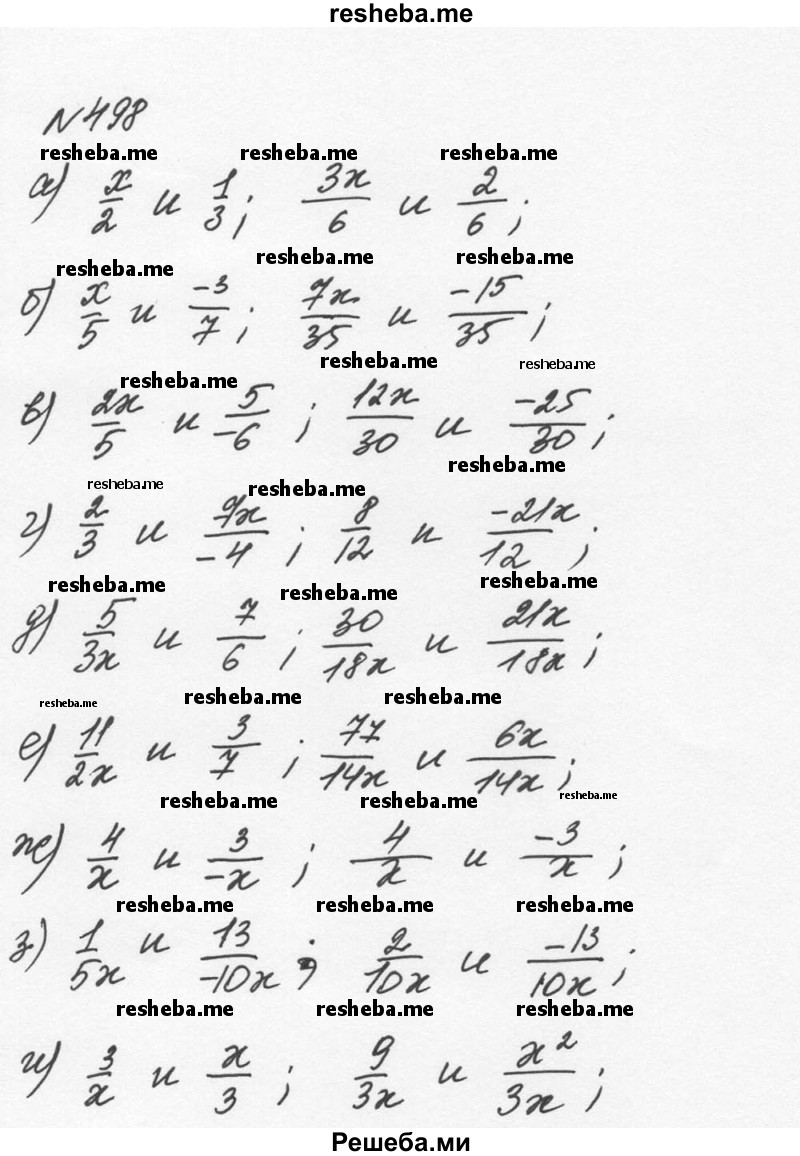 resheba.me
N 498
resheba.me resheba.me resheba.me
а) x/2 и 1/3; 3x/6 и 2/6;
resheba.me resheba.me resheba.me
б) x/5 и -3/7; 7x/35 и -15/35;
resheba.me resheba.me resheba.me
в) 2x/5 и 5/-6; 12x/30 и -25/30;
resheba.me resheba.me resheba.me
г) 2/3 и 7x/-4; 8/12 и -21x/12;
resheba.me resheba.me resheba.me
д) 5/3x и 7/6; 30/18x и 21x/18x;
resheba.me resheba.me resheba.me
е) 11/2x и 3/7; 77/14x и 6x/14x;
resheba.me resheba.me resheba.me
ж) 4/x и 3/-x; 4/x и -3/x;
resheba.me resheba.me resheba.me
з) 1/5x и 13/-10x; 2/10x и -13/10x;
resheba.me resheba.me resheba.me
и) 3/x и x/3; 9/3x и x²/3x;
Решеба.ми